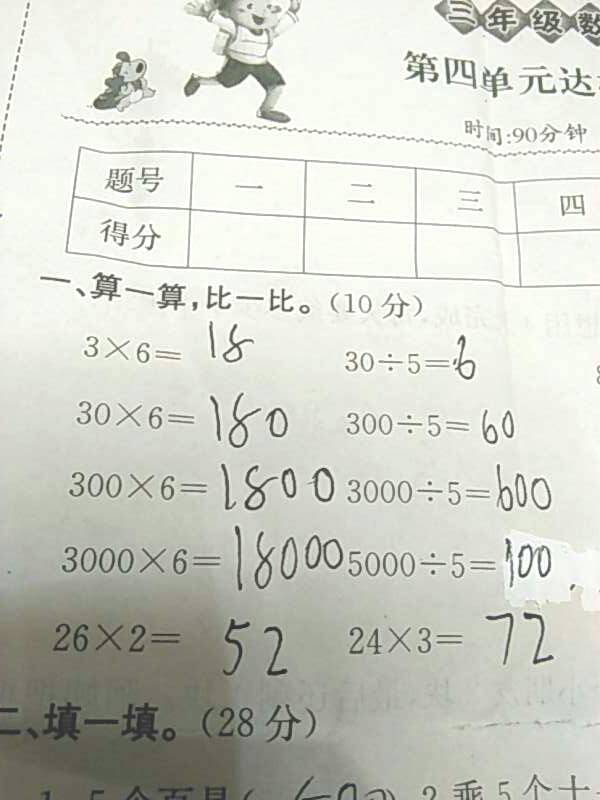 三年级数
第四单元达
时间:90分钟
题号 一 二 三 四
得分
一、算一算,比一比。(10分)
3×6= 18 30÷5=6
30×6= 180 300÷5= 60
300×6= 1800 3000÷5=600
3000×6= 18000 5000÷5=100
26×2= 52 24×3= 72
二、填一填。(28分)